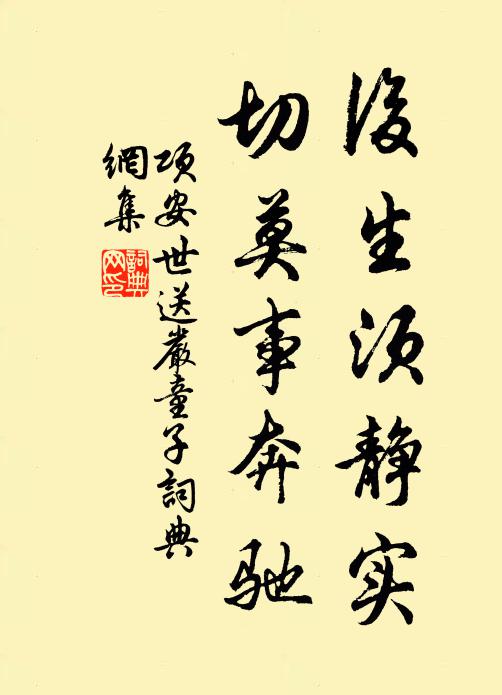 後生须静实
切莫事奔驰
项安世送嚴童子詞典
網集
詞典
网印